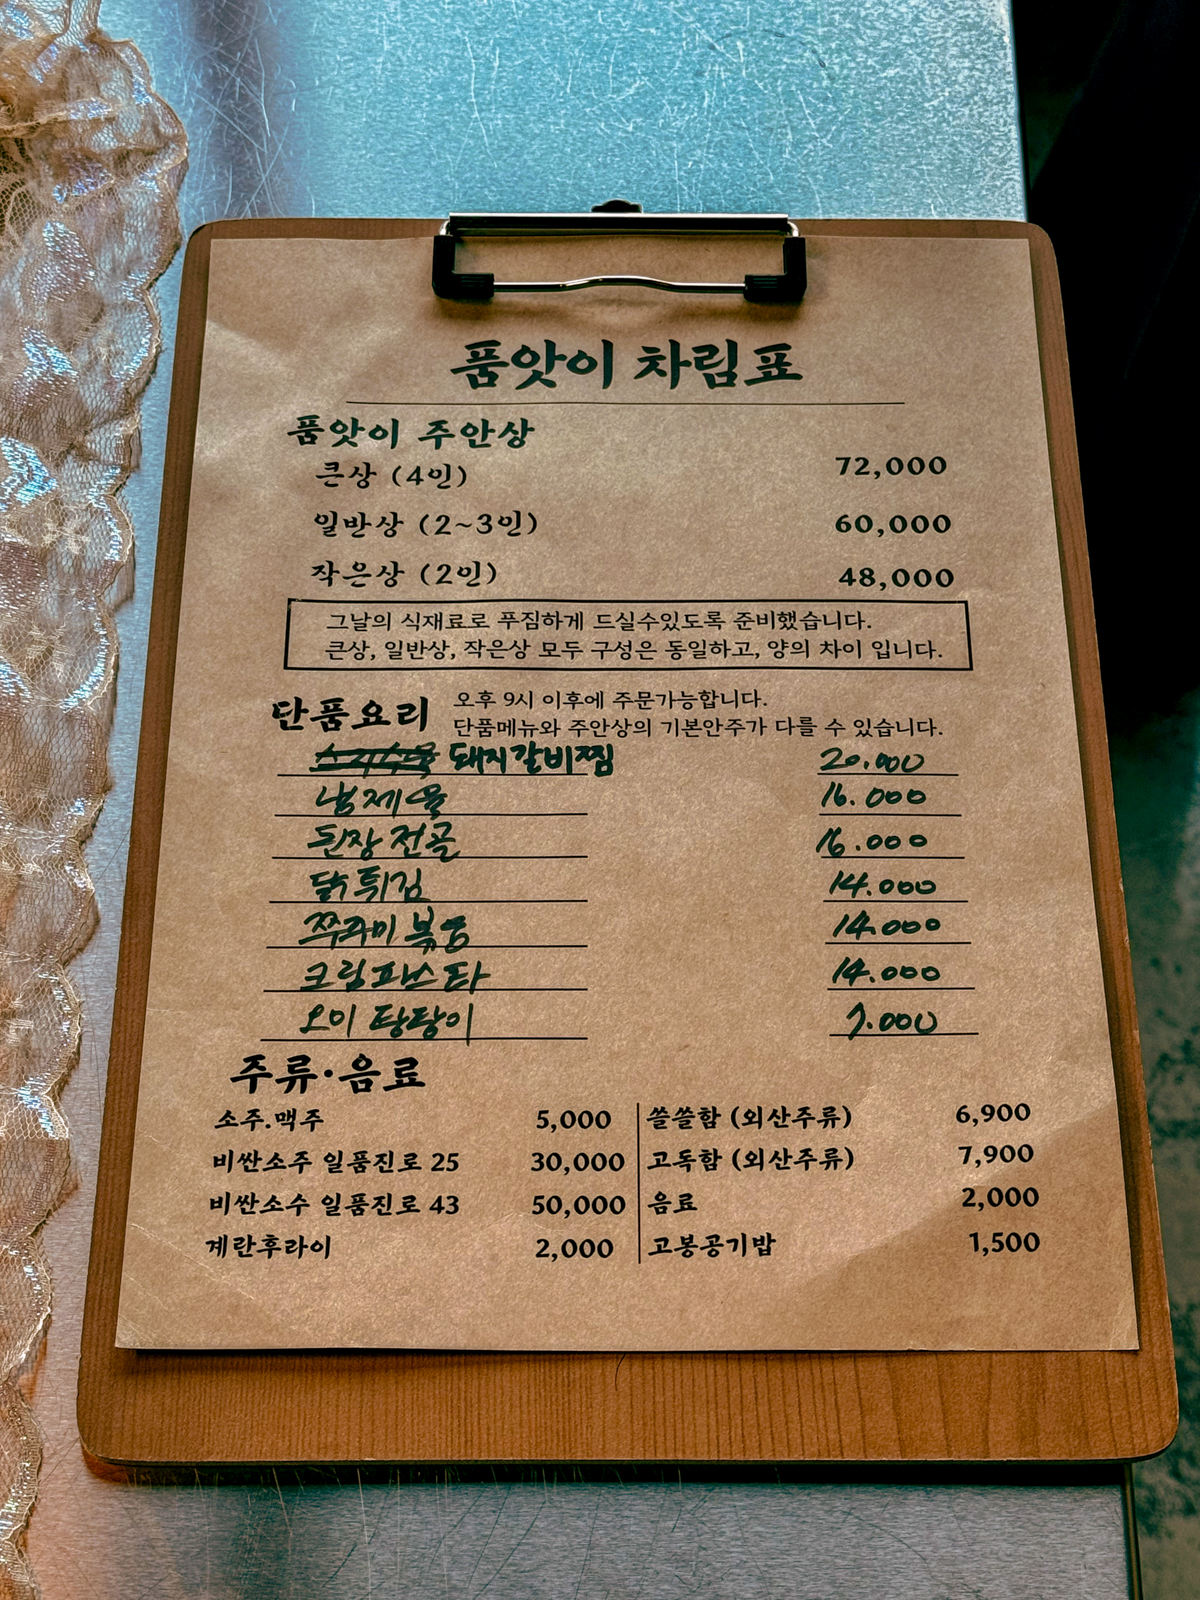 품앗이 차림표
품앗이 주안상
큰상 (4인) 72,000
일반상 (2~3인) 60,000
작은상 (2인) 48,000
그날의 식재료로 푸짐하게 드실수있도록 준비했습니다.
큰상, 일반상, 작은상 모두 구성은 동일하고, 양의 차이 입니다.
단품요리
오후 9시 이후에 주문가능합니다.
단품메뉴와 주안상의 기본안주가 다를 수 있습니다.
돼지갈비찜 20.000
냉제육 16.000
된장전골 16.000
닭튀김 14.000
쭈꾸미볶음 14.000
크림파스타 14.000
오이탕탕이 7.000
주류·음료
소주.맥주 5,000
비싼소주 일품진로 25 30,000
비싼소수 일품진로 43 50,000
계란후라이 2,000
쓸쓸함 (외산주류) 6,900
고독함 (외산주류) 7,900
음료 2,000
고봉공기밥 1,500